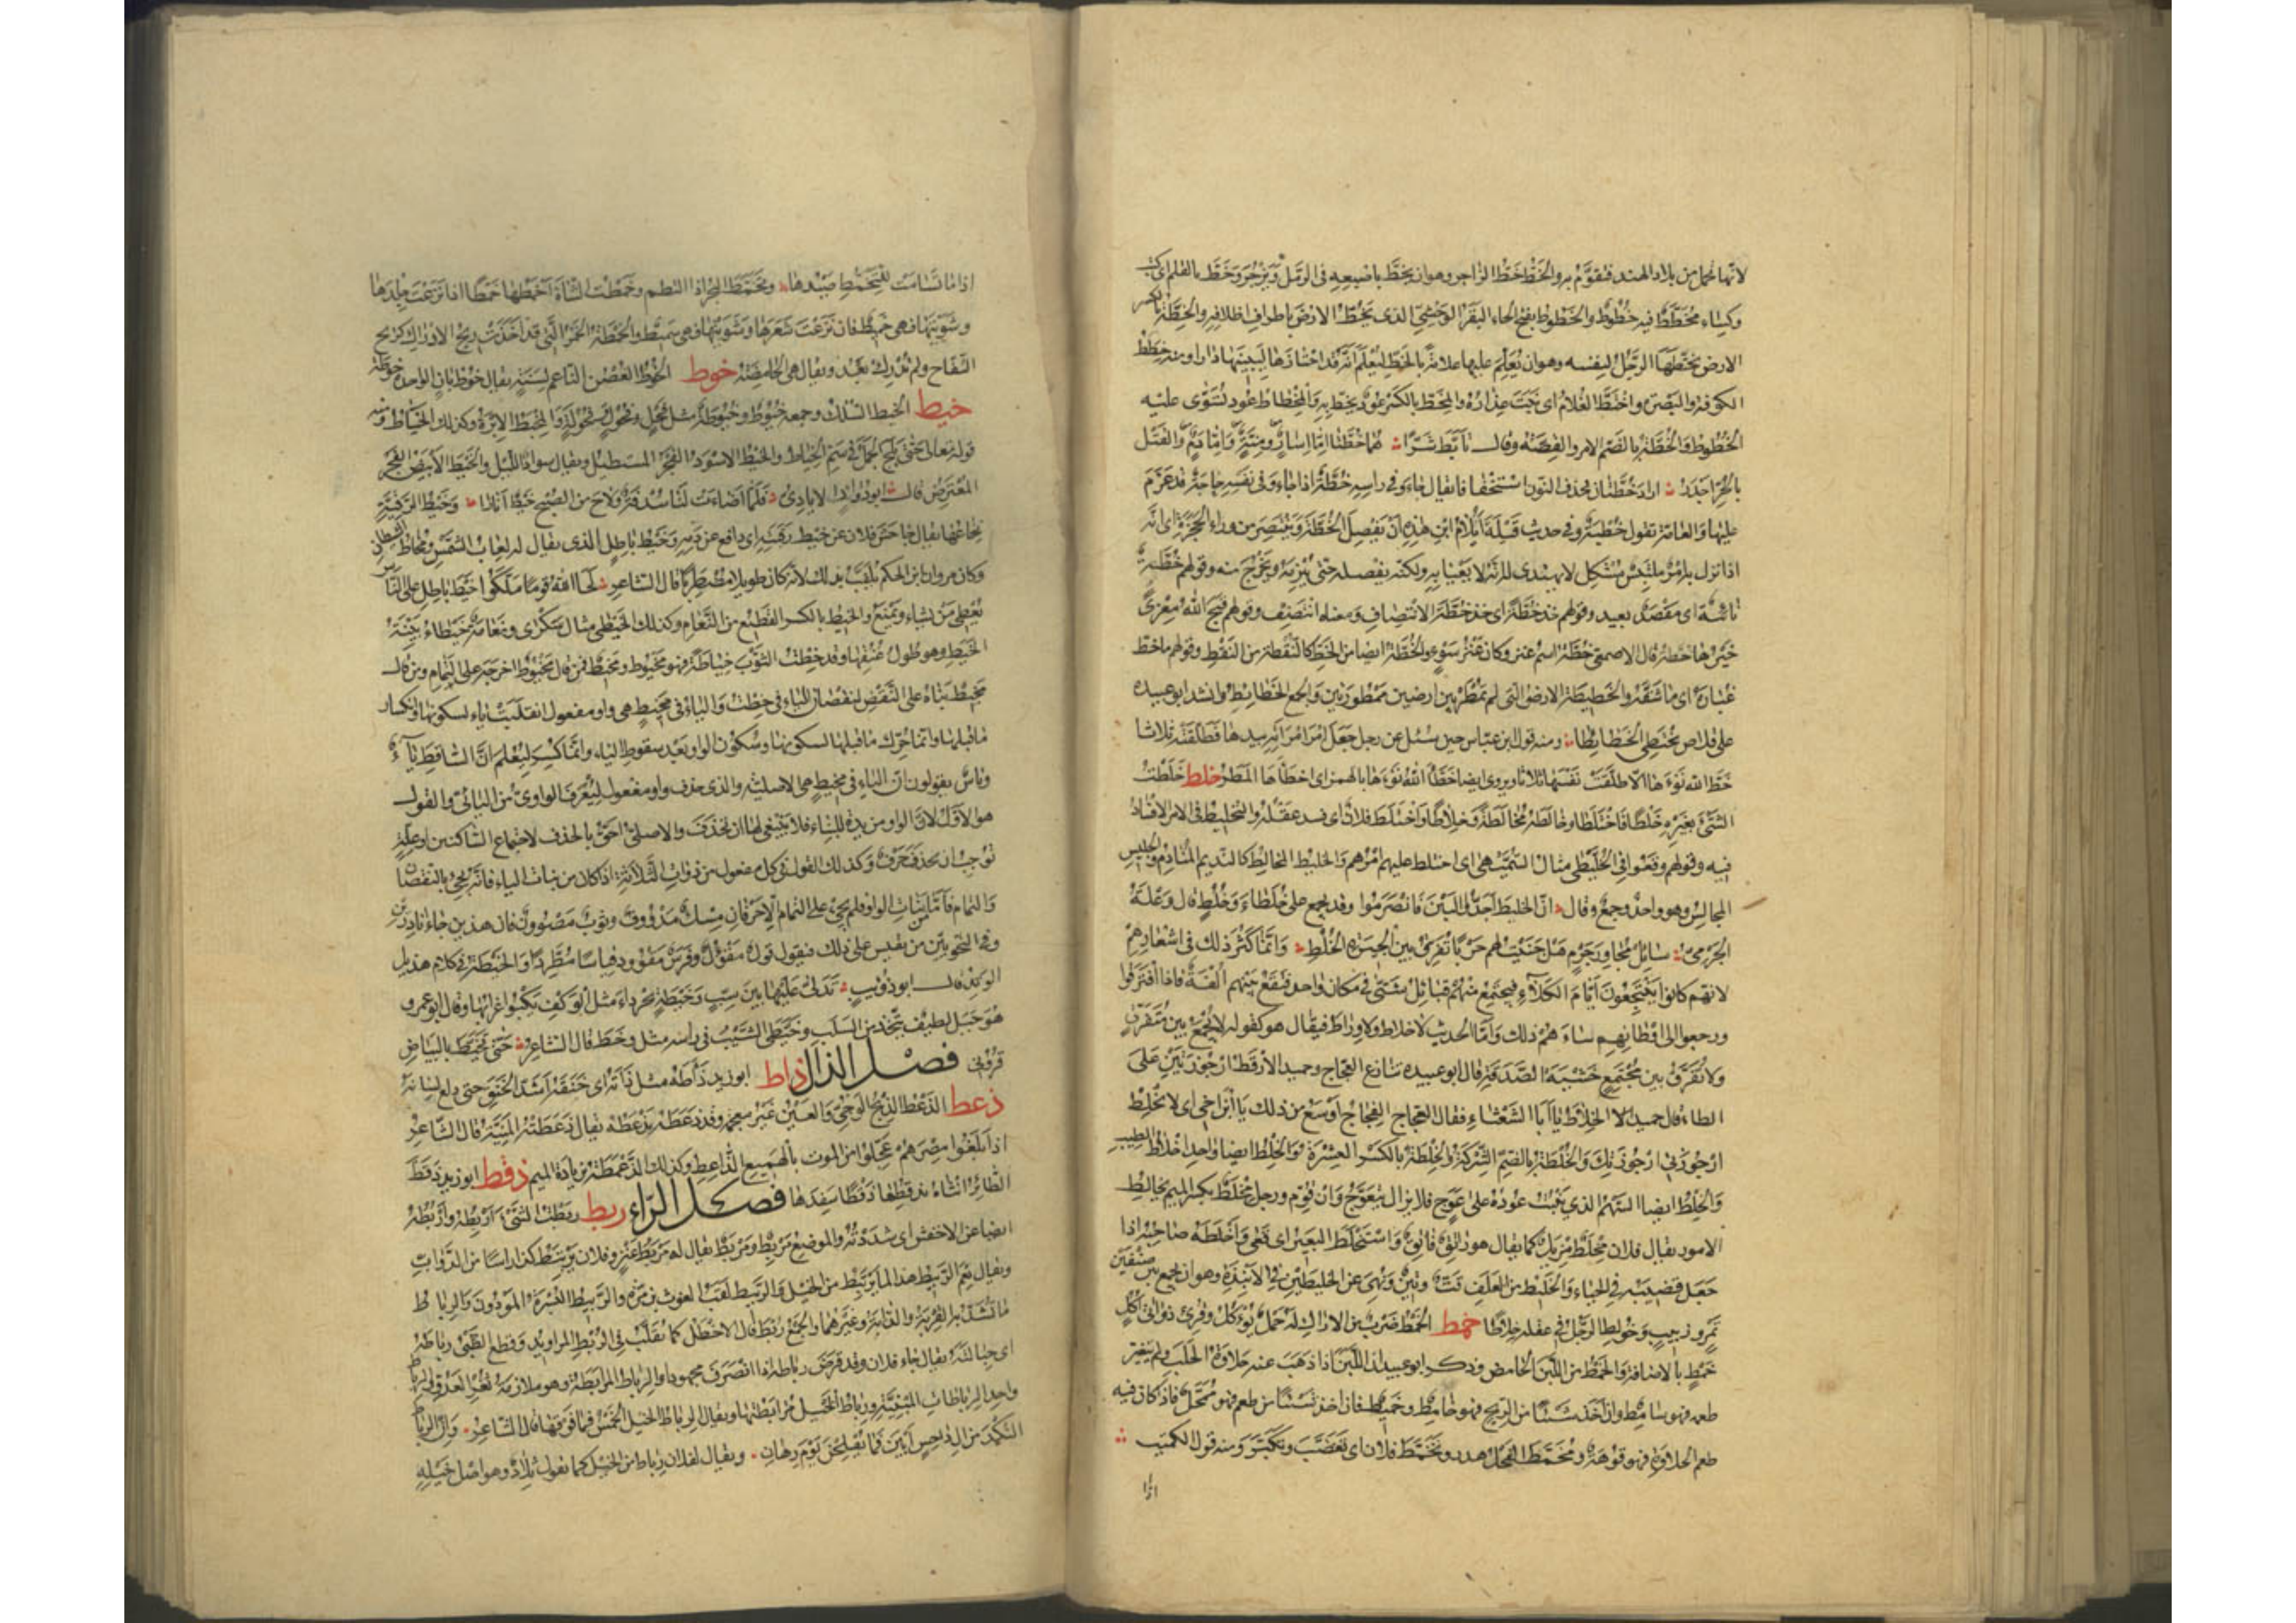 لانها تحمل من بلاد الهند فتقوّم به والخَطّ خَطّ الزاجر وهو ان يخطّ باصبعه فى الرَمْل ويَزْجُرَ وخَطَّ بالقلم اى كتب
وكساء مُخَطَّطٌ فيه خُطُوطٌ والخَطُوطُ بفتح الخاء البَقَرُ الوَحْشِىّ الذى يَخُطّ الارضَ باطراف اظلافه والخِطَّةُ بالكسر
الارض يَخْتَطُّهَا الرَّجُل لنفسه وهو ان يُعَلِّمَ عليها علامةً بالخَطّ ليُعْلَمَ انّه قد احْتَازَهَا لِيَبْنِيَهَا دارا ومنه خِطَطُ
الكوفة والبَصْرَة واخْتَطَّ الغُلامُ اى نَبَتَ عِذَارُهُ والمِخَطّ بالكَسْر عُودٌ يُخَطّ به والمِخْطَاطُ عُود تُسَوَّى عليه
الخُطُوطُ والخُطَّةُ بالضّم الامر والقِصّة وقال تَأَبَّطَ شَرًّا هُمَا خُطَّتَا اِمّا اِسَارٌ ومِنَّةٌ وَاِمّا دَمٌ وَالقَتْلُ
بالحُرِّ اَجْدَرُ اراد خُطَّتَان فحذف النون اسْتِخْفَافًا يقال جَاءَ وفى راسِه خُطَّةٌ اذا جَاءَ وفى نَفْسِه حاجةٌ قد عَزَمَ
عليها والعامّة تقول خُطْبَةٌ وفى حديث قَيْلَةَ اَيُلَامُ ابنُ هٰذِهِ اَنْ يَفْصِلَ الخُطَّةَ وَيَنْتَصِرَ من وراء الحَجَزَةِ اى انّه
اذا نزل به امْرٌ مُلْتَبِسٌ مُشْكِل لا يُهْتَدى له انّه لا يَعْيَا به ولكنّه يفصله حتى يُبْرِمَهُ ويَخْرُجَ منه وقولهم خُطَّةٌ
نائيةٌ اى مَقْصَدٌ بعيد وقولهم خذ خُطَّةً اى خذ خُطَّةَ الانْتِصَافِ ومعناه انْتَصِفْ وقولهم قَبَّحَ اللّٰه مِعْزًى
خَيْرُهَا خُطَّةُ قال الاصمعى خُطَّةُ اسم عنز وكان عَنْزَ سَوْءٍ والخُطَّةُ ايضا من الخَطّ كالنُقْطَة من النَقْط وقولهم ما خَطَّ
غُبَارَهُ اى مَا شَقَّهُ والخَطِيطَة الارض التى لم تُمْطَرْ بين ارضين مَمْطورَتَيْن والجمع الخَطَائِطُ وانشد ابو عبيدة
على قِلاص تَخْتَطِى الخَطَائِطَا ومنه قول ابن عبّاس حين سُئل عن رجل جَعَل اَمْرَ امْرَاَتِه بيدها فَطَلَّقَتْهُ ثلاثا
خَطَّ اللّٰه نَوْءَهَا الّا طلَّقَتْ نَفْسَهَا ثلاثا ويروى ايضا خَطَّأَ اللّٰه نَوْءَهَا بالهمز اى اخطأَهَا المَطَرُ خلط خَلَطْتُ
الشَىْءَ بغَيْرِه خَلْطًا فَاخْتَلَطَ وخَالَطَهُ مُخَالَطَةً وَخِلَاطًا واخْتَلَطَ فلان اى فسد عَقْلُهُ والتخليط فى الامر الافسادُ
فيه وقولهم وقَعُوا فى الخُلَّيْطَى مثال السُّمَّيْهَى اى اختلط عليهم امْرُهُم والخليط المخالِط كالنديم المُنَادِم والجليس
المجالِس وهو واحد وجمع وقال انّ الخليطَ اَجَدُّوا البَيْنَ فَانْصَرَمُوا وقد يجمع على خُلَطَاءَ وَخُلُطٍ قال وَعْلَةُ
الجَرْمىّ سَائِلْ مُجَاوِرَ جَرْمٍ هَلْ جَنَيْتُ لهم حَرْبًا تُفَرِّقُ بين الجِيرَةِ الخُلُطِ وَاِنّمَا كَثُرَ ذلك فى اشعارهم
لانّهم كانوا يَنْتَجِعُونَ ايّامَ الكَلَأِ فيجتمع منهُم قبائل شتّى فى مكان واحد فتقع بينهم اُلْفَةٌ فاذا افْتَرَقُوا
ورجعوا الى اوطانهم ساءَهم ذلك وامّا الحديث لا خلاط ولا وِرَاط فيقال هو كقوله لا يُجْمَعُ بين مُتَفَرِّقٍ
ولا يُفَرَّقُ بين مُجْتَمِعٍ خَشْيَةَ الصَدَقَةِ قال ابو عبيده تنازع العجّاج وحميد الارقط اُرْجُوزَتَيْنِ عَلَى
الطاء فقال حميد الا الخِلَاطَ يَا اَبَا الشَعْثَاءِ فقال العجاج الفِجَاجُ اَوْسَعُ من ذلك يَا ابْنَ اَخِى اى لا تَخْلِطْ
ارجوزتى بارجوزتك والخُلْطَةُ بالضمّ الشِّرْكَةُ والخِلْطَةُ بالكسر العِشْرَةُ والخِلْطُ ايضا واحد اَخْلَاطِ الطيب
والخِلْطُ ايضا السَهْمُ الذى يَنْبُتُ عُودُهُ على عَوَجٍ فلا يزال يَتَعَوَّجُ وَاِنْ قُوِّمَ ورجل مِخْلَطٌ بكسر الميم يخالِط
الامور يقال فلان مِخْلَطٌ مِزْيَلٌ كما يقال هو راتِقٌ فاتِقٌ واسْتَخْلَطَ البعيرُ اى قَعَى وَاَخْلَطَهُ صاحبُهُ اذا
جعل قضيبَهُ فى الحياء والخَلِيط من العَلَف قَتٌّ وتِبْنٌ ونُهِىَ عن الخليطين فى الاَنْبِذَة وهو ان يجمع بين صنفين
تَمْرٍ وزبيبٍ وخُولِطَ الرَجُل فى عقله خِلَاطًا خمط الخَمْطُ ضَرْبٌ من الاراك له حَمْلٌ يُؤْكَلُ وقُرِئَ ذَوَاتَى اُكُلِ
خَمْطٍ بالاضافة والخَمْطُ من اللَّبَن الحامض وذكر ابو عبيد ان اللَّبَن اذا ذهَبَ عنه حَلَاوَةُ الحَلَب ولم يتغيّر
طعمه فهو سَامِطٌ وان اَخَذَ شَيْئًا من الريح فهو خَامِطٌ وخَمِيطٌ فان اخذ شَيْئًا من طعم فهو مُمَحَّلٌ فاذا كان فيه
طعم الحلاوة فهو قُوهَةٌ وتَخَمَّطَ الفَحْل هدر وتَخَمَّطَ فلان اى تَغَضَّبَ وتكبَّرَ ومنه قول الكميت
اذا
اذا مَا تَسَامَتْ للتَخَمُّطِ صِيدُهَا وتَخَمَّطَ البحر اذا التطم وخَمَطْتُ الشَاةَ اَخْمِطُهَا خَمْطًا اذا نَزَعْتَ جِلْدَهَا
وشَوَيْتَهَا فهى خَمِيطٌ فان نَزَعْتَ شَعَرَهَا وشَوَيْتَهَا فهى سَمِيطٌ والخَمْطَةُ الخَمْرُ الّتى قد اَخَذَتْ ريح الادراك كريح
التُفّاح ولم تُدْرِك بَعْدُ ويقال هى الحامضة خوط الخُوط الغُصْن الناعم لسَنَةٍ يقال خُوطُ بانٍ الواحدة خُوطَة
خيط الخيط السِلْك وجمعه خُيُوطٌ وخُيُوطَةٌ مثل فَحْلٍ وفُحُولٍ وفُحُولَةٍ والمِخْيَطُ الاِبْرَةُ وكذلك الخِيَاطُ ومنه
قوله تعالى حَتّى يَلِجَ الجَمَلُ فى سَمِّ الخِيَاطِ والخَيْطُ الاسْوَدُ الفَجْرُ المستطيل ويقال سواد اللَّيْل والخَيْطُ الاَبْيَضُ الفَجْرُ
المُعْتَرِضُ قال ابو دُوَادٍ الايادىّ فَلَمّا اَضَاءَتْ لَنَا سُدْفَةٌ وَلَاحَ من الصُبْحِ خَيْطٌ اَنَارَا وخَيْطُ الرَقَبَةِ
نُخَاعُهَا يقال جَاحَشَ فلان عن خَيْط رَقَبَتِه اى دافع عن دَمِه وخَيْطُ بَاطِلٍ الذى يقال له لُعابُ الشَمْس ومُخَاطُ الشيطان
وكان مروان بن الحكم يُلَقَّبُ بذلك لانّه كان طويلا مضطربًا قال الشاعر لَحَا اللّٰهُ قومًا مَلَّكُوا خَيْطَ بَاطِلٍ على النّاسِ
يُعْطِى مَنْ يَشَاءُ ويَمْنَعُ والخِيطُ بالكسر القَطِيعُ من النَعَامِ وكذلك الخَيْطَى مثال سَكْرَى ونَعَامَةٌ خَيْطَاءُ بَيِّنَةُ
الخَيَطِ وهو طُول عُنُقِهَا وقد خِطْتُ الثَوْبَ خِيَاطَةً فهو مَخْيُوط ومَخِيطٌ فمن قال مَخْيُوط اخرجه على التَمَام ومن قال
مَخِيطٌ بَنَاهُ على النَقْص لنقصان الياء فى خِطْتُ والياء فى مَخِيطٍ هى واو مفعول انقلبَتْ ياء لسكونها وانكسار
ما قبلها وانما حُرِّك ما قبلها لسكونها وسُكُون الواو بعد سقوط الياء وانّما كُسِرَ ليُعْلَمَ انّ الساقط ياءٌ
وناسٌ يقولون انّ الياء فى مخيط هى الاصلية والذى حذف واو مفعول ليُعْرَفَ الواوىّ من اليائىّ والقول
هو الاوّل لانّ الواو مزيدة للبناء فلا ينبغى لها ان تُحْذَفَ والاصلىّ احقّ بالحذف لاجتماع الساكنين او علّةٍ
توجب ان يحذف حَرْفٌ وكذلك القول فى كل مفعول من ذوات الثلاثة اذا كان من بنات الياء فانّه يجىء بالنقصان
والتمام فامّا من بَنَاتِ الواو فلم يجئْ على التمام الّا حَرْفَان مِسْكٌ مَدْوُوفٌ وثوبٌ مَصْوُونٌ فان هذين جاءا نادرَيْن
وفى النحويين من يقيس على ذلك فيقول قَوْلٌ مَقْوُولٌ وفَرَسٌ مَقْوُودٌ قياسًا مُطَّرِدًا والخَيْطَة فى كلام هذيل
الوَتِدُ قال ابو ذُؤَيْبٍ تَدَلّى عَلَيْهَا بينَ سِبٍّ وَخَيْطَةٍ بجَرْدَاءَ مثل الوَكْفِ يَكْبُو غُرَابُهَا وقال ابو عمرو
هُوَ حَبْل لطيف يُتَّخَذُ من السَلَب وخَيَّطَ الشَيْبُ فى راسه مثل وخَطَ قال الشاعر حَتّى تَخَيَّطَ بالبَيَاضِ
قُرُونِى فصل الذال ذاط ابو زيد ذَأَطَهُ مثل ذَأَتَهُ اى خَنَقَهُ اَشَدّ الخَنِق حتى دلع لسَانهُ
ذعط الذَعْطُ الذبح الوَحِىّ والعَيْن غَيْرُ معجمة وقد ذَعَطَهُ يَذْعَطُهُ يقال ذَعَطَتْهُ المَنِيّةُ قال الشاعر
اذا بَلَغُوا مِصْرَهُمْ عُجِّلُوا من الموت بالهِمْيَعِ الذَاعِطِ وكذلك الذَعْمَطَةُ بزيادة الميم ذقط ابو زيد ذَقَطَ
الطائر انثاه يذقطها ذَقْطًا سَفِدَهَا فصل الرّاء ربط رَبَطْتُ الشَىْءَ اَرْبِطُهُ وَاَرْبُطُهُ
ايضا عن الاخفش اى شَدَدْتُهُ والموضع مَرْبِطٌ ومَرْبَطٌ يقال له مَرْبِطُ عَنْزٍ وفلان يَرْتَبِطُ كذا راسًا من الدَوَابّ
ويقال نِعْمَ الرَبِيطُ هذا لما يُرْتَبَطُ من الخيل والرَبيط لقب الغوث بن مُرّة والرَبِيطُ البُسْرُ المَوْدُونُ والرِبَاطُ
ما تُشَدُّ به القِرْبَةُ والدَابَّةُ وغيرهما والجمعُ رُبُطٌ قال الاخطل كما تَقَلَّبُ فى الرُبْطِ المَرَاوِيدُ وقطع الظَبْىُ رباطَهُ
اى حِبَالَتَهُ يقال جاء فلان وقد قرَضَ رباطَهُ اذا انْصَرَفَ مجهودا والرباط المُرَابَطَةُ وهو ملازمة ثَغْرِ العَدُوّ والرباط
واحد الرِباطَاتِ المَبْنِيَّة ورِبَاطُ الخَيْل مُرَابَطَتُهَا ويقال الرِباط الخيل الخمس فما فوقها قال الشاعر وانّ الرِبَاطَ
النُّكْدَ من آل دَاحِسٍ اَبَيْنَ فَمَا يُفْلِحْنَ يَوْمَ رِهَانِ ويقال لفلان رِبَاطٌ من الخيل كما يقول تِلَادٌ وهو اصل خَيْلِهِ